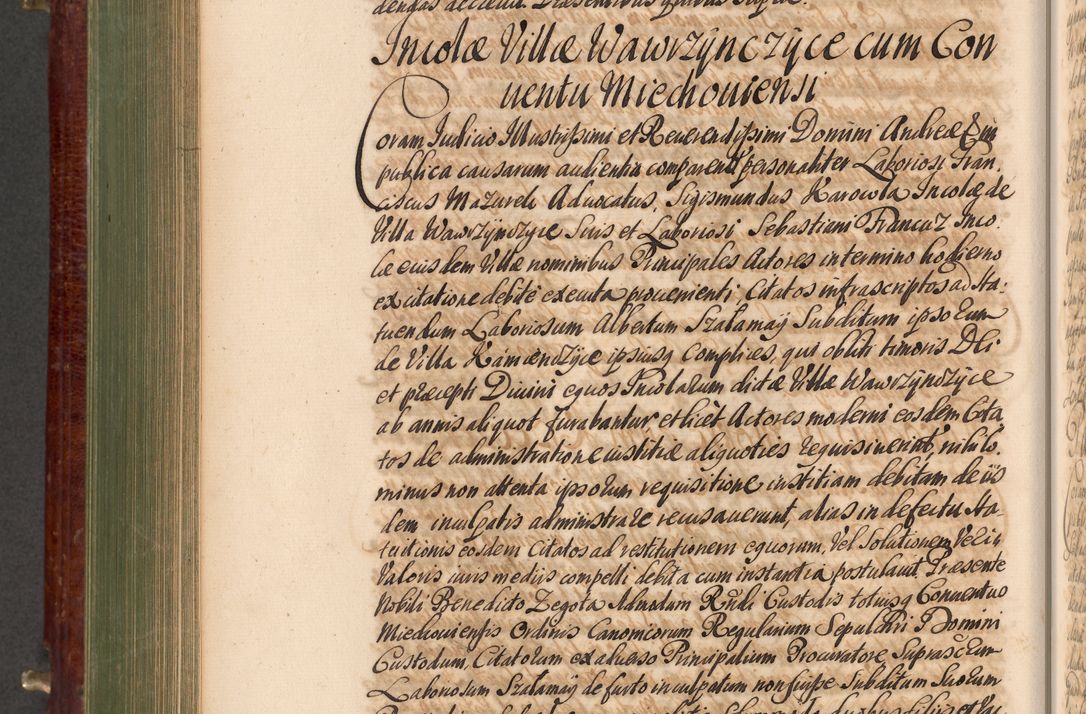 dengas decreuit. Præsentibus quibus supra.
Incolæ Villæ Wawrzÿnczÿce cum Con
uentu Miechouiensi
Coram Iudicio Illustrissimi et Reuerendissimi Domini Andreæ &c in
publica causarum audientia comparentes personaliter Laboriosi Fran,
ciscus Mazurek Aduocatus, Sigismundus Karowla Incolæ de
Villa Wawrzÿnczÿce Suis et Laboriosi Sebastiani Francuz Inco.
læ eiusdem Villæ nominibus Principales Actores in termino hodierno
ex citatione debite executa prouenienti, Citatos infrascriptos ad sta:
tuendum Laboriosum Albertum Szałamaÿ Subditum ipsorum
de Villa Kamendzÿce ipsiusq Complices, qui obliti timoris Dei
et præcepti Diuini equos Incolarum dictæ Villæ Wawrzÿndzÿce
ab annis aliquot furabantur, et licet Actores moderni eosdem Cita
tos de administratione iustitiæ aliquoties requisiuerint, nihilo.
minus non attenta ipsorum requisitione iustitiam debitam de iis
dem inculpatis administrare recusauerunt, alias in defectu sta
tuitionis eosdem Citatos ad restitutionem equorum, Vel Solutionem Veri
Valoris iuris mediis compelli debita cum instantia postularunt. Præsente
Nobili Benedicto Zegota Admodum Rndi Custodis totiusq Conuentus
Miechouiensis Ordinis Canonicorum Regularium Sepulchri Domini
Custodum, Citatorum ex aduerso Principalium Procuratore, Suprascrum
Laboriosum Szałamaÿ de furto inculpatum non fuisse Subditum Suorum